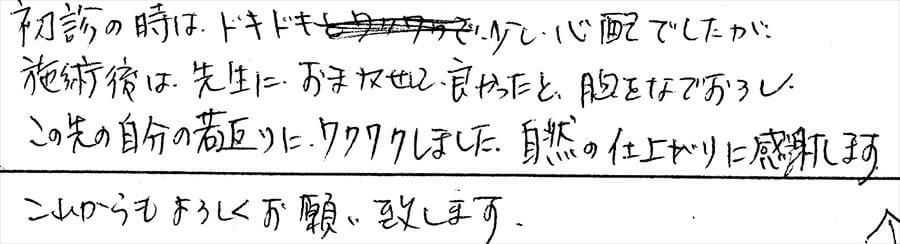 初診の時は、ドキドキ 少し心配でしたが、
施術後は、先生に、おまかせして良かったと、胸をなでおろし、
この先の自分の若返りに、ワクワクしました。自然の仕上がりに感謝します
これからもよろしくお願い致します。